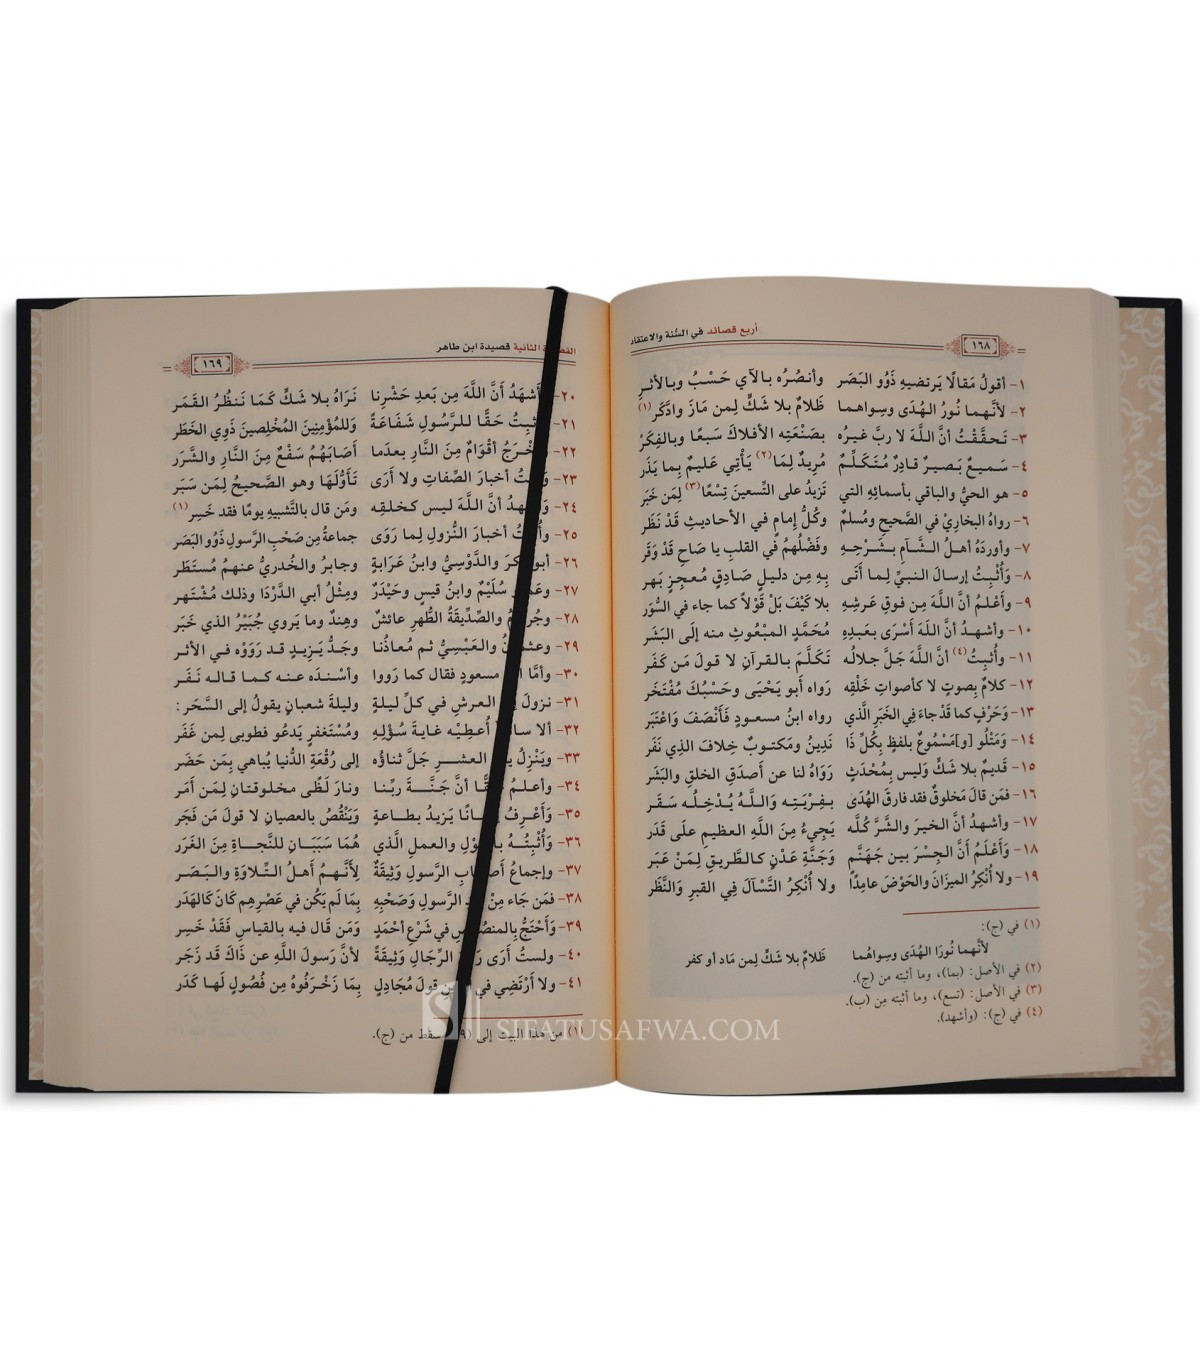 ١٦٨
أربع قصائد في السُّنة والاعتقاد
١- أقولُ مَقالًا يَرتضيهِ ذَوُو البَصَر وأنصُرُه بالآي حَسْبُ وبالأثرِ
٢- لأنَّهما نُورُ الهُدَى وسِواهما ظَلامٌ بلا شَكٍّ لِمن مَازَ وادَّكَر (١)
٣- تَحقَّقْتُ أنَّ اللَّهَ لا ربَّ غيرُه بصَنْعَتِه الأفلاكَ سَبعًا وبالفِكَرْ
٤- سَميعٌ بَصيرٌ قادِرٌ مُتَكلِّمٌ مُرِيدٌ لِمَا (٢) يَأْتِي عَليمٌ بِما يَذَر
٥- هو الحيُّ والباقي بأسمائِهِ التي تَزيدُ على التِّسعين تِسْعًا (٣) لِمَن خَبَر
٦- رواهُ البخاريْ في الصَّحيح ومُسلمٌ وكُلُّ إمامٍ في الأحاديثِ قَدْ نَظَر
٧- وأوردَهُ أهلُ الشَّآمِ بشَرْحِهِ وفضْلُهُم في القلبِ يا صَاحِ قَدْ وَقَر
٨- وَأُثْبِتُ إرسالَ النبيِّ لِما أتَى بِهِ مِن دليلٍ صَادِقٍ مُعجِزٍ بَهر
٩- وأعْلَمُ أنَّ اللَّهَ مِن فوقِ عَرشِهِ بلا كَيْفَ بَلْ قَوْلًا كما جاء في السُّوَر
١٠- وأشهدُ أنَّ اللَّهَ أسْرَى بعَبدِهِ مُحَمَّدٍ المبْعُوثِ منه إلى البَشَر
١١- وأُثبِتُ (٤) أنَّ اللَّهَ جَلَّ جلالُه تَكلَّمَ بالقرآنِ لا قولَ مَن كَفَر
١٢- كلامٌ بِصوتٍ لا كأصواتِ خَلْقِه رَواه أبو يَحْيَى وحَسْبُكَ مُفْتَخَر
١٣- وَحَرْفٍ كما قَدْ جاءَ فِي الخَبَرِ الَّذي رواه ابنُ مسعودٍ فَأَنْصَفَ وَاعْتَبَر
١٤- وَمَتْلُو [و]مَسْمُوعٌ بلفظٍ بِكُلِّ ذَا نَدِينُ ومَكتوبٌ خِلافَ الذي نَفَر
١٥- قَديمٌ بلا شَكٍّ وَليس بِمُحْدَثٍ رَوَاهُ لنا عن أصَدَقِ الخلقِ والبَشَر
١٦- فمَن قالَ مَخلوقٌ فقد فارقَ الهُدَى بفِرْيَتِه وَاللَّهُ يُدْخِلُه سَقَر
١٧- وأشهدُ أنَّ الخيرَ والشَّرَّ كُلَّه يَجِيءُ مِنَ اللَّهِ العظيمِ علَى قَدَر
١٨- وَأعْلَمُ أنَّ الجِسْرَ بين جَهَنَّمٍ وَجَنَّةِ عَدْنٍ كالطَّريقِ لِمَنْ عَبَر
١٩- ولا أُنْكِرُ الميزَانَ والحَوْضَ عامِدًا ولا أُنْكِرُ التَّسآلَ فِي القبرِ وَالنَّظَر
(١) في (ج):
لأنَّهما نُورَا الهُدَى وسِواهُما ظَلامٌ بلا شَكٍّ لِمن مَاد أو كفر
(٢) في الأصل: (بما)، وما أثبته من (ج).
(٣) في الأصل: (تسع)، وما أثبته مِن (ب).
(٤) في (ج): (وأشهد).
الثانية قصيدة ابن طاهر
١٦٩
٢٠- أَشهَدُ أنَّ اللَّهَ مِن بَعدِ حَشْرِنا نَرَاهُ بلا شَكٍّ كَمَا نَنظُرُ القَمَر
٢١- حَقًّا للرَّسُولِ شَفَاعَةً وَللمُؤْمِنِينَ المُخْلِصينَ ذَوِي الخَطَر
٢٢- أقْوَامٌ مِنَ النَّارِ بعدَما أصَابَهُمُ سَفْعٌ مِنَ النَّارِ والشَّرَر
٢٣- أخبَارَ الصِّفاتِ ولا أرَى تَأَوُّلَهَا وهو الصَّحيحُ لِمَن سَبَر
٢٤- أنَّ اللَّهَ ليس كخلقِه ومَن قال بالتَّشبيهِ يومًا فقد خَسِر (١)
٢٥- أخبارَ النُّزولِ لِما رَوَى جماعةٌ مِن صَحْبِ الرَّسولِ ذَوُو البَصَر
٢٦- أبو والدَّوْسِيُّ وابنُ عَرَابةٍ وجابرُ والخُدريُّ عنهمُ مُستَطَر
٢٧- سُلَيْمٌ وابنُ قيسٍ وحَيْدَرٌ ومِثْلُ أبي الدَّرْدَا وذلك مُشْتَهر
٢٨- والصِّدِّيقَةُ الطُّهرِ عائشٌ وهِندٌ وما يَروي جُبَيْرُ الذي خَبَر
٢٩- والعَبْسِيُّ ثم مُعاذُنا وجَدُّ يَزِيدٍ قد رَوَوْه في الأثر
٣٠- وأمَّا مسعودٍ فقال كما رَووا وأسْنَدَه عنه كما قاله نَفَر
٣١- نزولَ العرشِ في كلِّ ليلةٍ وليلةَ شعبانٍ يقولُ إلى السَّحَر:
٣٢- ألا أُعطِيْه غايةَ سُؤْلِهِ ومُسْتَغفرٍ يَدعُو فطوبى لِمن غَفَر
٣٣- ويَنْزِلُ العشرِ جَلَّ ثناؤه إلى رُقْعَةِ الدُّنيا يُباهي بِمَن حَضَر
٣٤- وأعلمُ أنَّ جَنَّةَ ربِّنا ونارَ لَظًى مخلوقتانِ لِمَن أمَر
٣٥- وَأَعْرِفُ يَزيدُ بطاعةٍ وَيَنْقُصُ بالعصيانِ لا قولَ مَن فَجَر
٣٦- وَأُثْبِتُهُ والعملِ الَّذي هُمَا سَبَبَانِ للنَّجاةِ مِنَ الغَرَر
٣٧- وإجماعُ الرَّسولِ وَثِيقَةٌ لِأَنَّهمُ أهلُ التِّلاوَةِ والبَصَر
٣٨- فمَن جَاء الرَّسولِ وَصَحْبِهِ بِمَا لَم يَكُن في عَصْرِهِم كَانَ كَالهَدَر
٣٩- وَأَحْتَجُّ في شَرْعِ أحْمَدٍ وَمَن قال فيه بالقياسِ فَقَدْ خَسِر
٤٠- ولستُ أرَى الرِّجَالِ وَثِيقَةً لأنَّ رسولَ اللَّهِ عن ذَاكَ قد زَجَر
٤١- ولا أرْتَضِي في قولَ مُجَادِلٍ بِمَا زَخْرَفُوه مِن فُصُولٍ لَها كَدَر
(١) مِن هذا البيت إلى سقط من (ج).
SIFATUSAFWA.COM